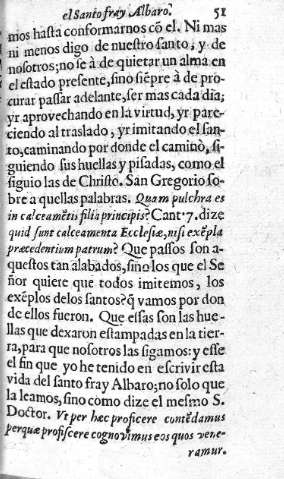 el Santo fray Albaro. 51
mos hasta conformarnos cõ el. Ni mas
ni menos digo de nuestro santo, y de
nosotros; no se à de quietar un alma en
el estado presente, sino siẽpre à de pro-
curar passar adelante, ser mas cada dia;
yr aprovechando en la virtud, yr pare-
ciendo al traslado, yr imitando el san-
to, caminando por donde el caminò, si-
guiendo sus huellas y pisadas, como el
siguio las de Christo. San Gregorio so-
bre aquellas palabras. Quam pulchra es
in calceamẽtis filia principis? Cant. 7. dize
quid sunt calceamenta Ecclesiæ, nisi exẽpla
præcedentium patrum? Que passos son a-
questos tan alabados, sino los que el Se
ñor quiere que todos imitemos, los
exẽplos de los santos? q̃ vamos por don
de ellos fueron. Que essas son las hue-
llas que dexaron estampadas en la tier-
ra, para que nosotros las sigamos: y esse
el fin que yo he tenido en escrivir esta
vida del santo fray Albaro; no solo que
la leamos, sino como dize el mesmo S.
Doctor. Vt per hæc proficere contẽdamus
perquæ profiscere cognovimus eos quos vene-
ramur.